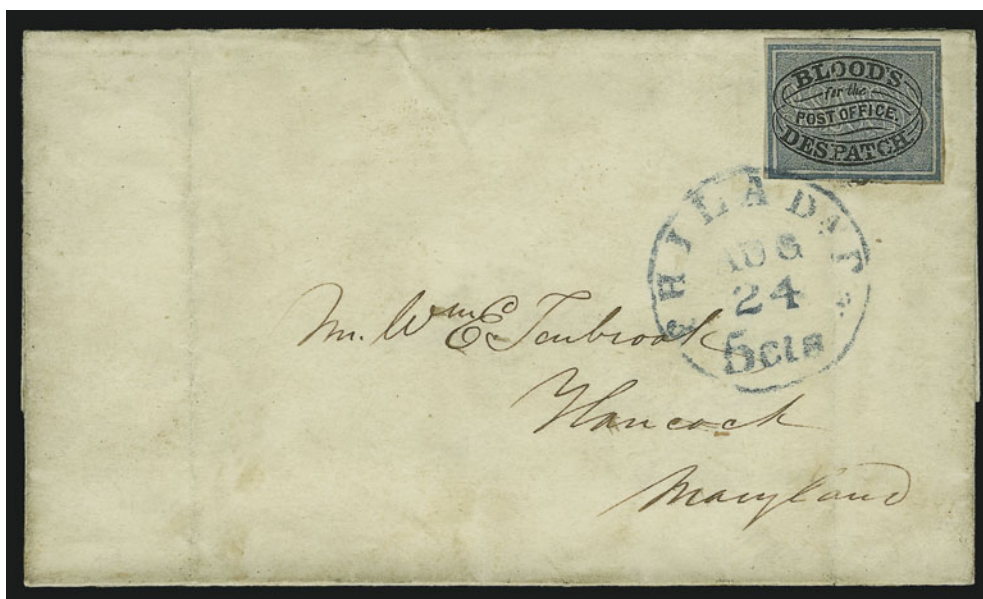 BLOOD'S
for the
POST OFFICE.
DESPATCH
PHILADA Pa.
AUG
24
5cts
Mr. Wm E. Tenbrook
Hancock
Maryland